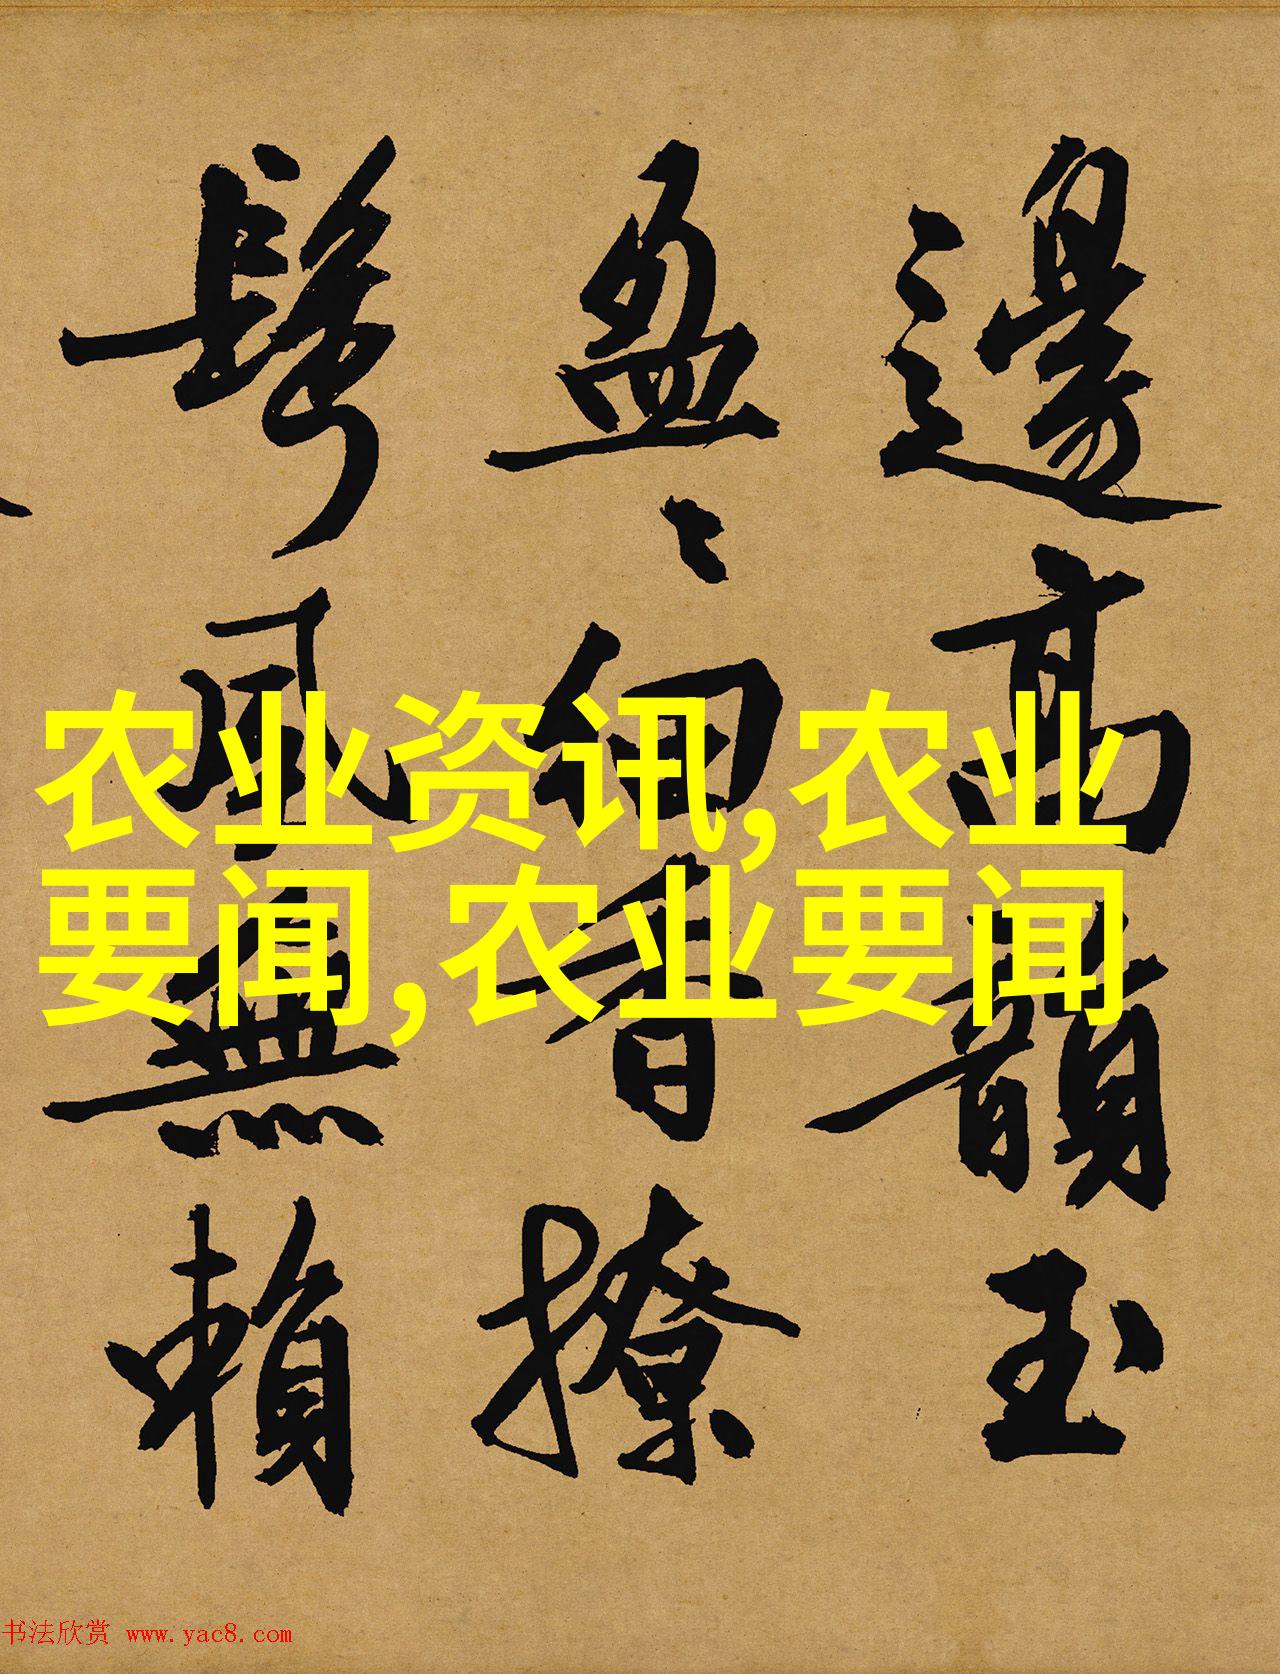 邊高韻玉
盈〻細香撩
鬢風無賴
农业资讯,农业
要闻,农业要闻
书法欣赏 www.yac8.com